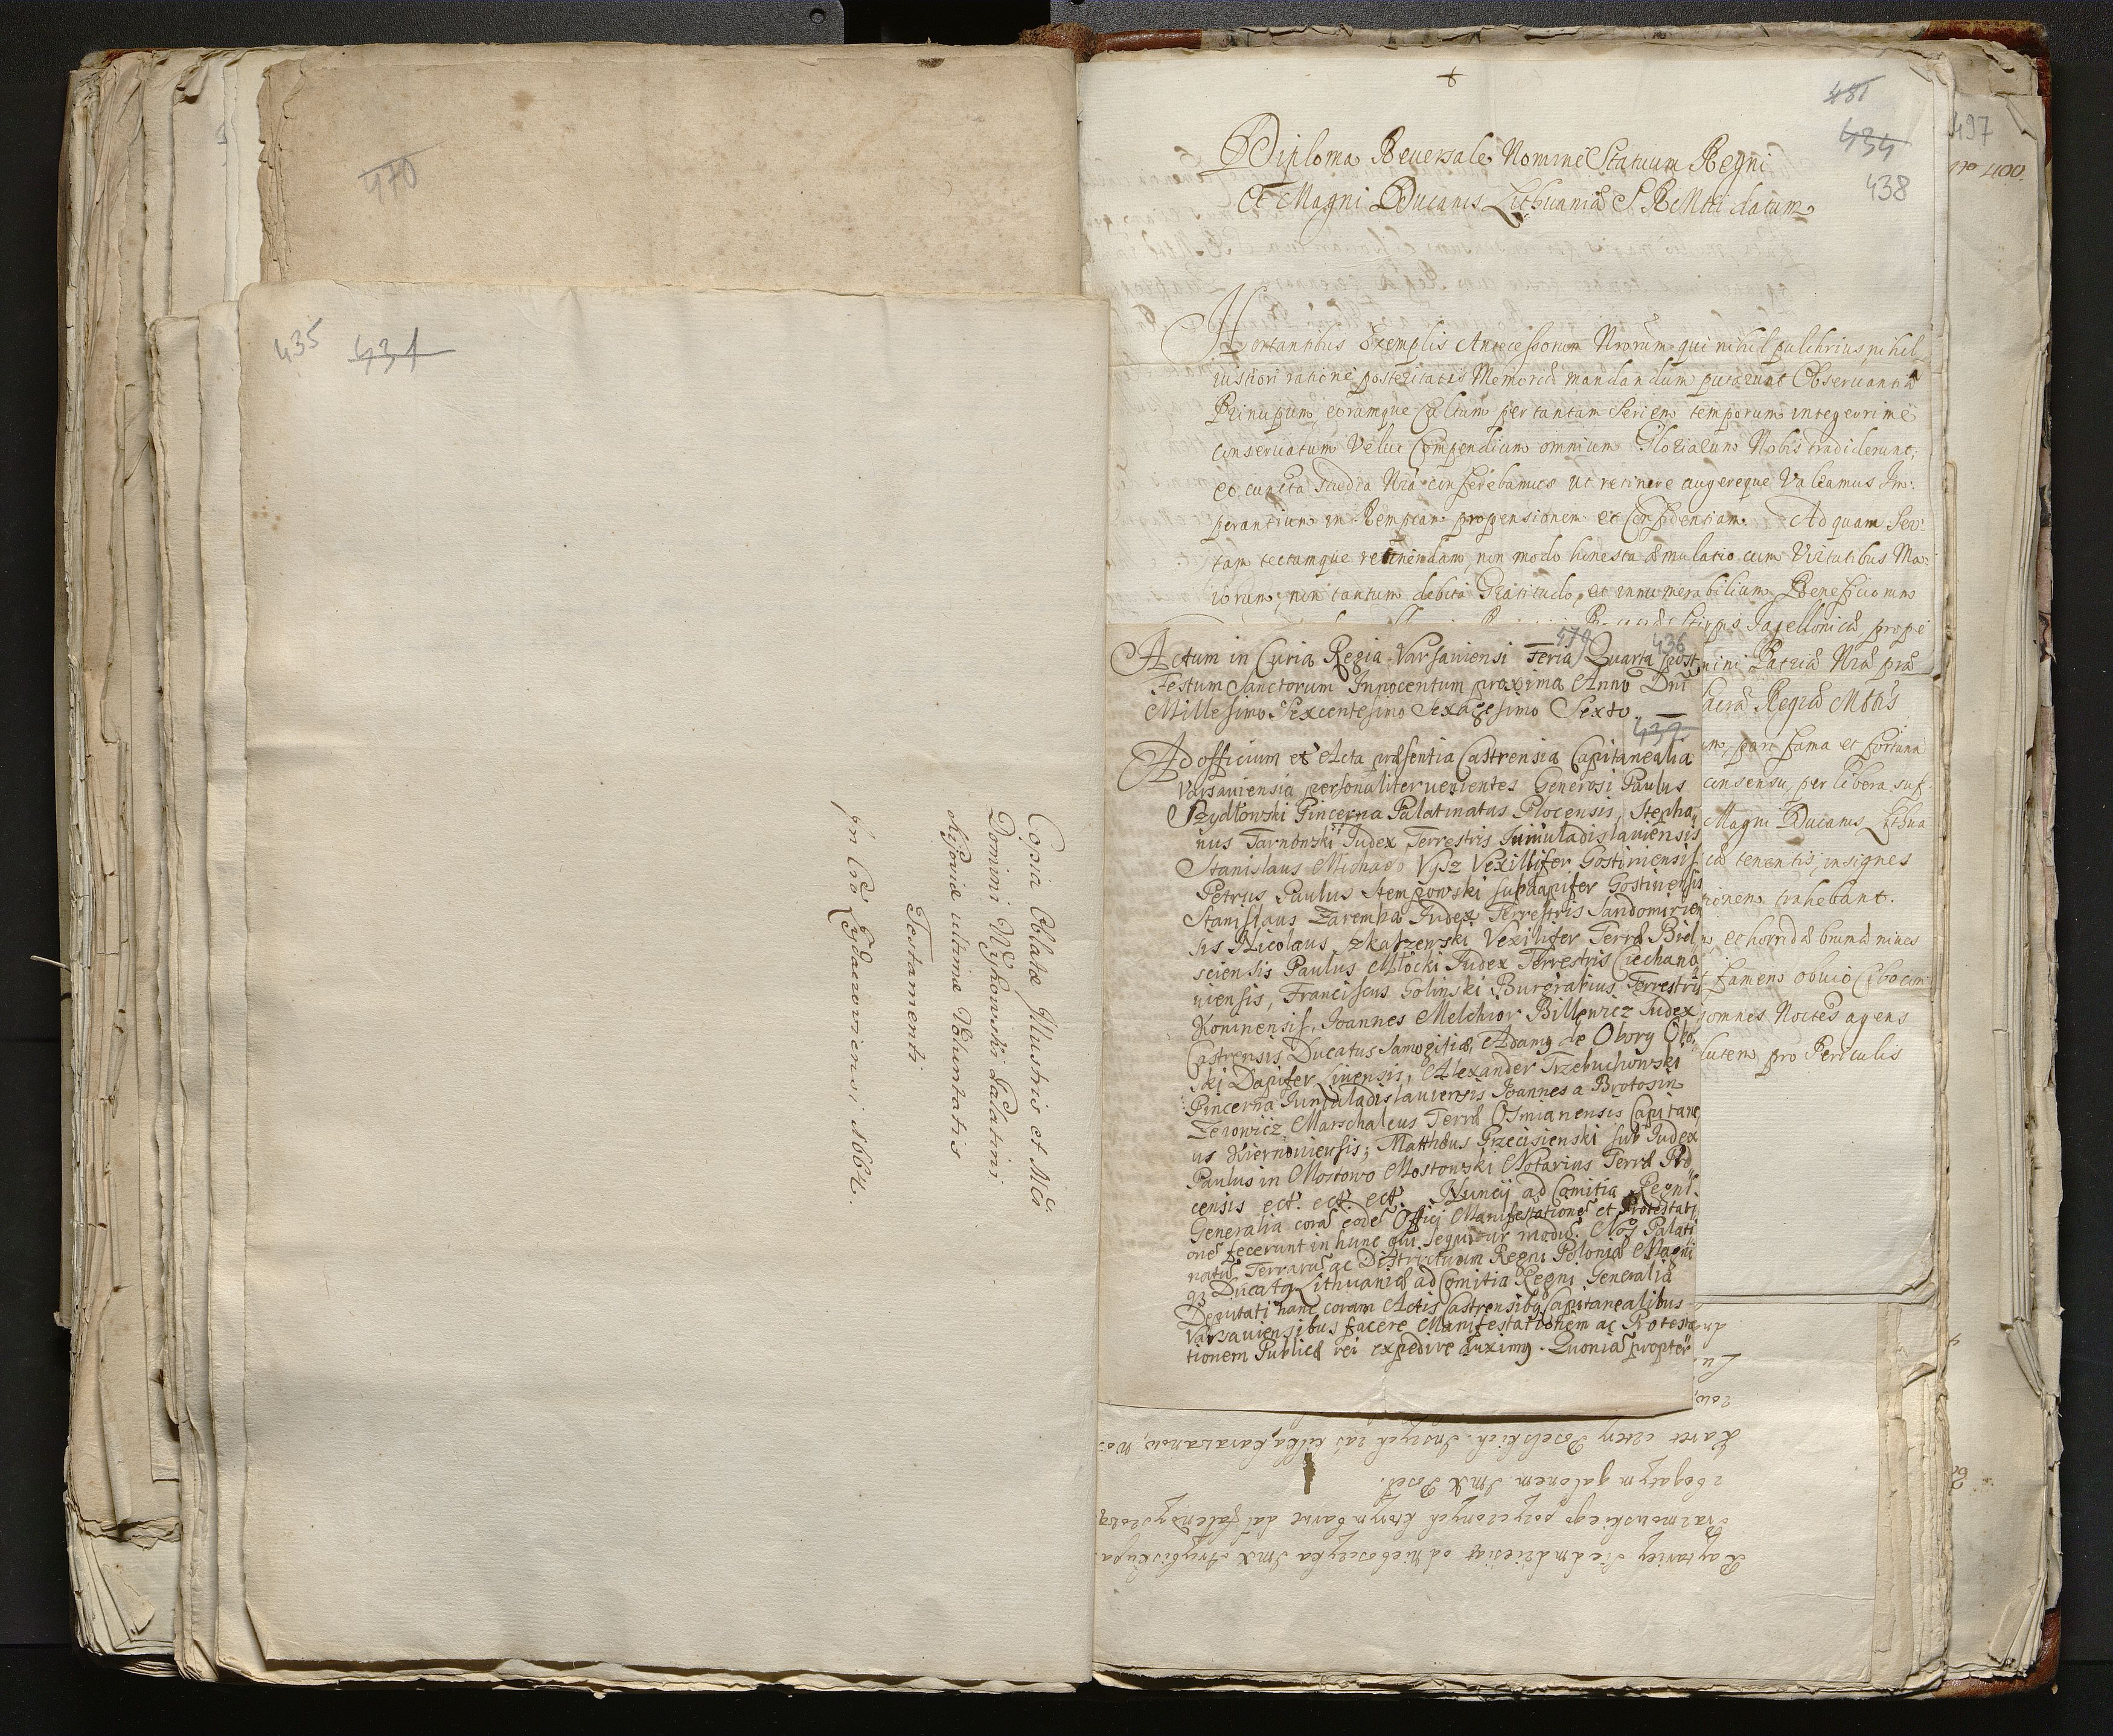 470
435 431
Copia Oblatæ Illustris et Mci
Domini Wÿhowski Palatini
Kijoviæ ultimæ Voluntatis
Testamenti
1664.
481
434
438
497
400.
Diploma Reuersale Nomine Statuum Regni
Et Magni Ducatus Lithuaniæ S R Mtti datum
Hortantibus Exemplis Antecessorum Nrorum qui nihil pulchrius, nihil
iustiori ratione posteritatis Memoriæ mandandum putarunt Obseruantiâ
Principum, eorumque Cultum per tantam Seriem temporum integerrime
conseruatum Velut Compendium omnium Gloriarum Nobis tradiderunt;
eo cuncta studia Nra conferebamus ut retinere augereque Valeamus Im:
perantium in Rempcam propensionem et Confidentiam. Ad quam Sar:
tam tectamque retinendam, non modo honesta æmulatio cum Virtutibus Ma:
iorum; non tantum debita Gratitudo, et innumerabilium Beneficiorum
Stirpis Jagellonicæ prope
Patriæ Nræ præ
Sacræ Regiæ Mttis
pari fama et fortuna
consensu, per libera suf
Magni Ducatus Lithua
tenentis, insignes
trahebant.
et horridæ brumæ niues
famem obuio Cibo con
somnes Noctes agens
lutem, pro Periculis
470 436
Actum in Curia Regia Varsaviensi Feria Quarta post
Festum Sanctorum Innocentum proxima Anno Dni
Millesimo Sexcentesimo Sexagesimo Sexto.
432
Ad officium et Acta præsentia Castrensia Capitanealia
Varsaviensia personaliter uenientes Generosi Paulus
Szydłowski Pincerna Palatinatus Plocensis, Stepha
nus Tarnowski Judex Terrestris Juniuladislauiensis
Stanislaus Michael Vysz Vexillifer Gostiniensis
Petrus Paulus Stempowski subdapifer Gostinensis
Stanislaus Zaremba Judex Terrestris Sandomirien
sis Nicolaus Skaszewski Vexilifer Terræ Biel
sciensis Paulus Młocki Judex Terrestris Ciechano
uiensis, Franciscus Golinski Burgrabius Terrestris
Koninensis, Joannes Melchior Billewicz Judex
Castrensis Ducatus Samogitiæ, Adamus de Obory Obo
ski Dapifer Livensis, Alexander Trzebuchowski
Pincerna Juniuladislauiensis Joannes a Brotosin
Zerowicz Marschalcus Terræ Osmianensis Capitane
us Kiernouiensis; Matthæus Grzecisienski sub Judex
Paulus in Mostowo Mostowski Notarius Terræ Plo
censis ect. ect. ect. Nuncij ad Comitia Regni
Generalia corã eodẽ Offici Manifestationẽ et Protestati
onẽ fecerunt in hunc qui sequitur modũ. Nos Palati
natũ Terrarũ ac Districtuum Regni Poloniæ Magni
qz Ducatus Lithuaniæ ad Comitia Regni Generalia
Deputati hanc coram Actis Castrensibus Capitanealibus
Varsauiensibus facere Manifestationem ac Protesta
tionem Publicæ rei expedire duximus. Quoniã propter
Karet cztery Poselskich. Inszych zaś kilka, karawanow, Wo
z bogatym galonem Jmć Poseł.
Prazmowskiego pozyczonych
Raytariey siedmdziesiąt od Nieboszczyka Jmć Arcybiskupa